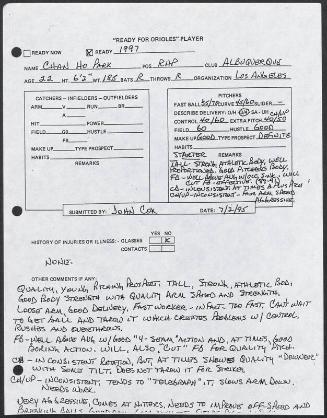 "READY FOR ORIOLES" PLAYER
READY NOW READY 1997
NAME CHAN HO PARK POS RHP CLUB ALBUQUERQUE
AGE 22 HT 6'2" WT 185 BATS R THROWS R ORGANIZATION LOS ANGELES
CATCHERS - INFIELDERS - OUTFIELDERS
ARM V RUN BR
A
HIT POWER
FIELD GO HUSTLE
PR
MAKE UP TYPE PROSPECT
HABITS
REMARKS
PITCHERS
FAST BALL CURVE SLIDER -
DESCRIBE DELIVERY: O/H
CONTROL 40/60 EXTRA PITCH
FIELD 60 HUSTLE GOOD
MAKE UP GOOD TYPE PROSPECT DEFINITE
HABITS
REMARKS
STARTER
TALL STRONG ATHLETIC BODY, WELL
PROPORTIONED. GOOD PITCHERS BODY.
FB - WELL ABOVE AVG W/ SINK. WILL
CUT FB EFFECTIVE.
CB - INCONSISTENT AT TIMES
CH/UP - INCONSISTENT - FAIR ARM SPEED
AGGRESSIVE
SUBMITTED BY: JOHN COX DATE: 7/2/95
YES NO
HISTORY OF INJURIES OR ILLNESS: GLASSES X
CONTACTS
NONE.
OTHER COMMENTS IF ANY:
QUALITY, YOUNG PITCHING PROSPECT. TALL, STRONG, ATHLETIC BOD,
GOOD BODY STRENGTH WITH QUALITY ARM SPEED AND STRENGTH,
LOOSE ARM, GOOD DELIVERY, FAST WORKER - IN FACT TOO FAST, CAN'T WAIT
TO GET BALL AND THROW IT WHICH CREATES PROBLEMS W/ CONTROL,
RUSHES AND OVERTHROWS.
FB - WELL ABOVE AVG W/ GOOD "4-SEAM" ACTION AND, AT TIMES, GOOD
BORING ACTION. WILL, ALSO, "CUT" FB FOR QUALITY PITCH.
CB - INCONSISTENT ROTATION, BUT, AT TIMES SHOWES QUALITY "DOWNER"
WITH SOME TILT. DOES NOT THROW IT FOR STRIKES
CH/UP - INCONSISTENT, TENDS TO "TELEGRAPH" IT, SLOWS ARM DOWN.
NEEDS WORK.
VERY AGGRESSIVE, COMES AT HITTERS, NEEDS TO IMPROVE OFF-SPEED AND